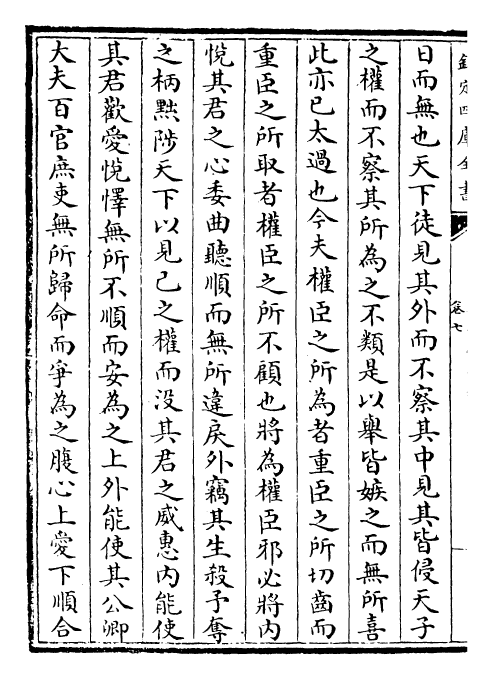 欽定四庫全書
卷七
日而無也天下徒見其外而不察其中見其皆侵天子
之權而不察其所為之不類是以舉皆嫉之而無所喜
此亦已太過也今夫權臣之所為者重臣之所切齒而
重臣之所取者權臣之所不顧也將為權臣邪必將內
悅其君之心委曲聽順而無所違戾外竊其生殺予奪
之柄黜陟天下以見已之權而沒其君之威惠內能使
其君歡愛悅懌無所不順而安為之上外能使其公卿
大夫百官庶吏無所歸命而爭為之腹心上愛下順合